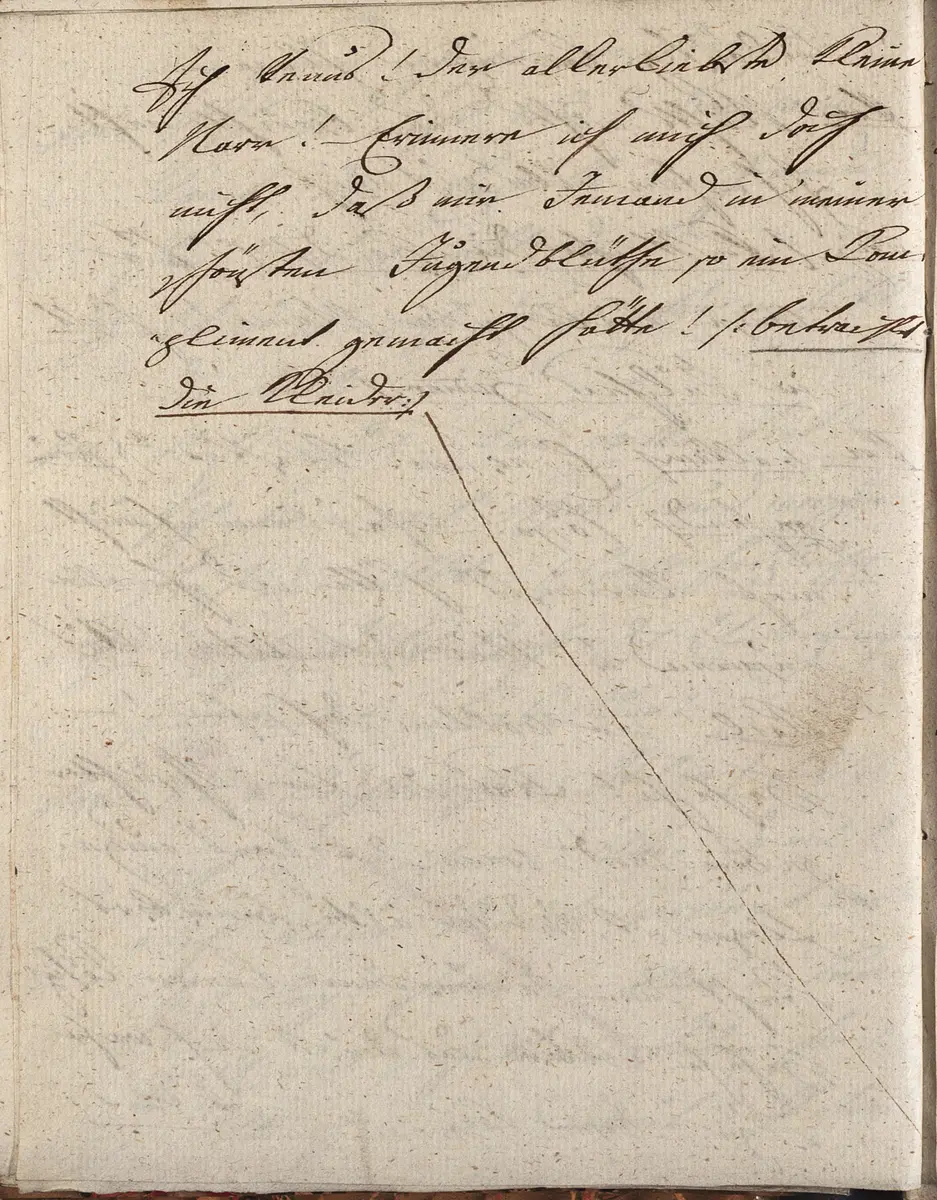 Ich Venus! der allerliebste kleine
Narr! – Erinnere ich mich doch
nicht, daß mir Jemand in meiner
schönsten Jugendblüthe so ein Com-
pliment gemacht hätte! /: betracht
die Kleider :/